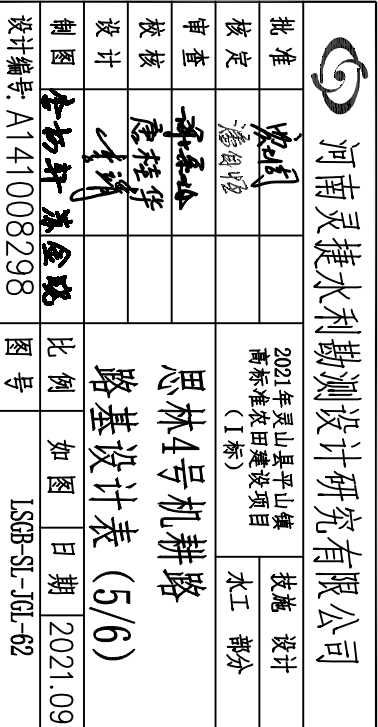 河南灵捷水利勘测设计研究有限公司
批准
核定 潘自恒
审查
校核 詹桂华
设计
制图
设计编号: A141008298
2021年灵山县平山镇
高标准农田建设项目
（Ⅰ标）
技施 设计
水工 部分
思林4号机耕路
路基设计表（5/6）
比例 如图 日期 2021.09
图号 LSGB-SL-JGL-62